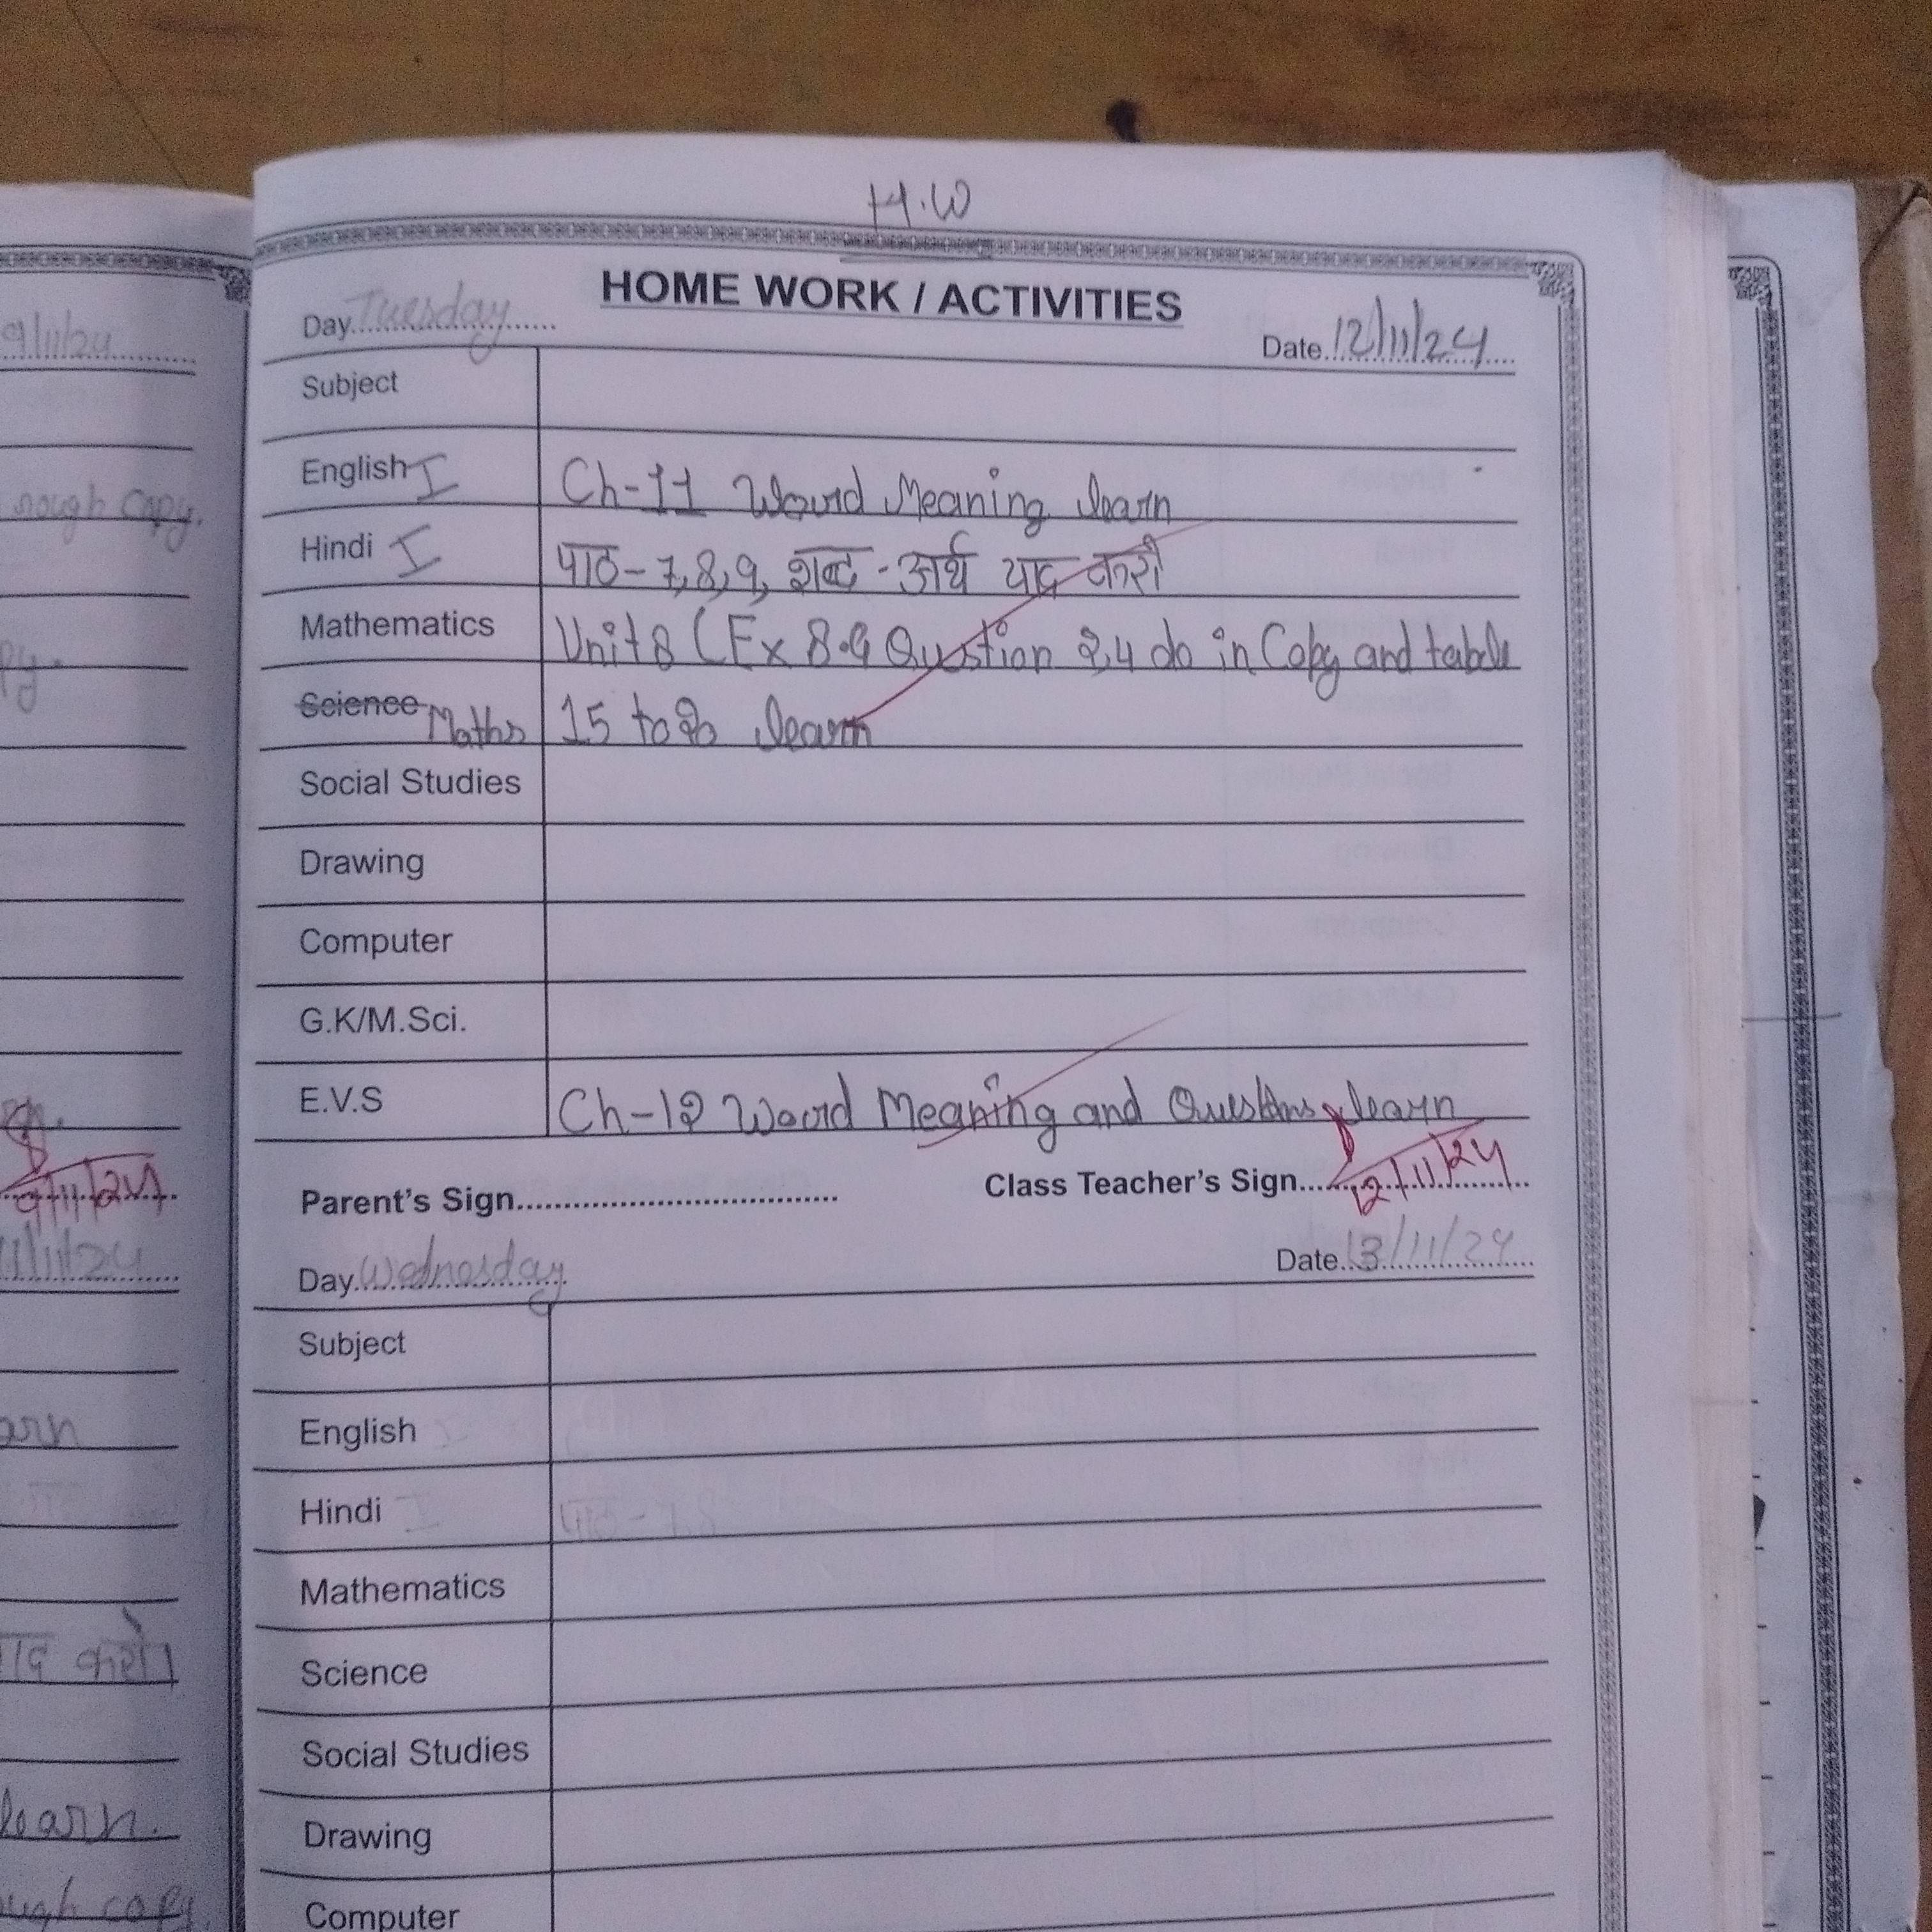 H.W
HOME WORK / ACTIVITIES
Day Tuesday
Date 12/11/24
Subject
English I Ch-11 Word Meaning learn
Hindi I पाठ-7,8,9, शब्द-अर्थ याद करो
Mathematics Unit 8 (Ex 8.4 Question 2,4 do in Copy and table
Science Maths 15 to 20 learn
Social Studies
Drawing
Computer
G.K/M.Sci.
E.V.S Ch-12 Word Meaning and Questions learn
Parent's Sign
Class Teacher's Sign 12/11/24
Day Wednesday
Date 13/11/24
Subject
English
Hindi I पाठ-7,8
Mathematics
Science
Social Studies
Drawing
Computer
9/11/24
rough Copy.
py.
9/11/24
11/11/24
arn
याद करो।
learn.
ough copy.